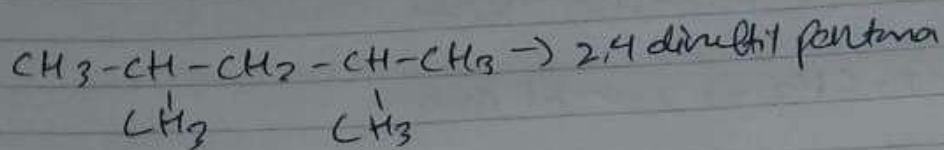 CH3-CH-CH2-CH-CH3 → 2,4 dimetil pentana
CH3 CH3